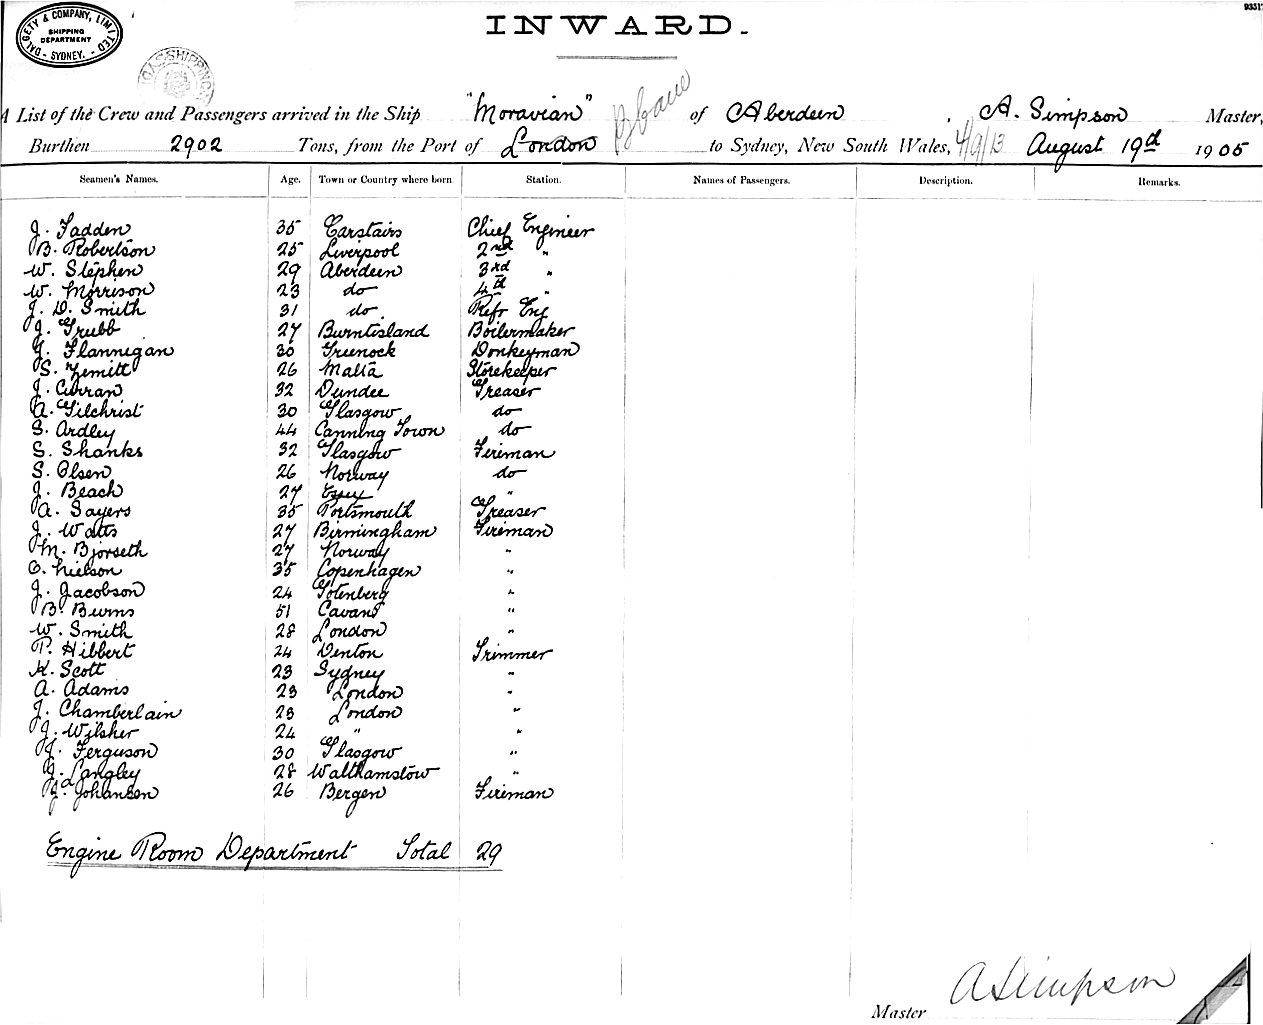 93517
DALGETY & COMPANY, LIMITED
SHIPPING
DEPARTMENT
- SYDNEY. -
INWARD.
A List of the Crew and Passengers arrived in the Ship "Moravian" of Aberdeen, A. Simpson Master,
Burthen 2902 Tons, from the Port of London to Sydney, New South Wales, 4/9/13 August 19th 1905
Seamen's Names. Age. Town or Country where born Station. Names of Passengers. Description. Remarks.
J. Fadden 35 Carstairs Chief Engineer
B. Robertson 25 Liverpool 2nd "
W. Stephen 29 Aberdeen 3rd "
W. Morrison 23 do 4th "
J. D. Smith 31 do. Refr Eng
J. Grubb 27 Burntisland Boilermaker
J. Flannigan 30 Greenock Donkeyman
S. Zemitt 26 Malta Storekeeper
J. Curran 32 Dundee Greaser
A. Gilchrist 30 Glasgow do
S. Ardley 44 Canning Town do
S. Shanks 32 Glasgow Fireman
S. Olsen 26 Norway do
J. Beach 27 Essex "
A. Sayers 35 Portsmouth Greaser
J. Watts 27 Birmingham Fireman
M. Bjorseth 27 Norway "
C. Nielson 35 Copenhagen "
J. Jacobson 24 Gotenberg "
B. Burns 51 Cavan "
W. Smith 28 London "
P. Hibbert 24 Denton Trimmer
K. Scott 23 Sydney "
A. Adams 23 London "
J. Chamberlain 23 London "
J. Wilsher 24 " "
J. Ferguson 30 Glasgow "
J. Langley 28 Walthamstow "
J. Johansen 26 Bergen Fireman
Engine Room Department Total 29
A Simpson
Master